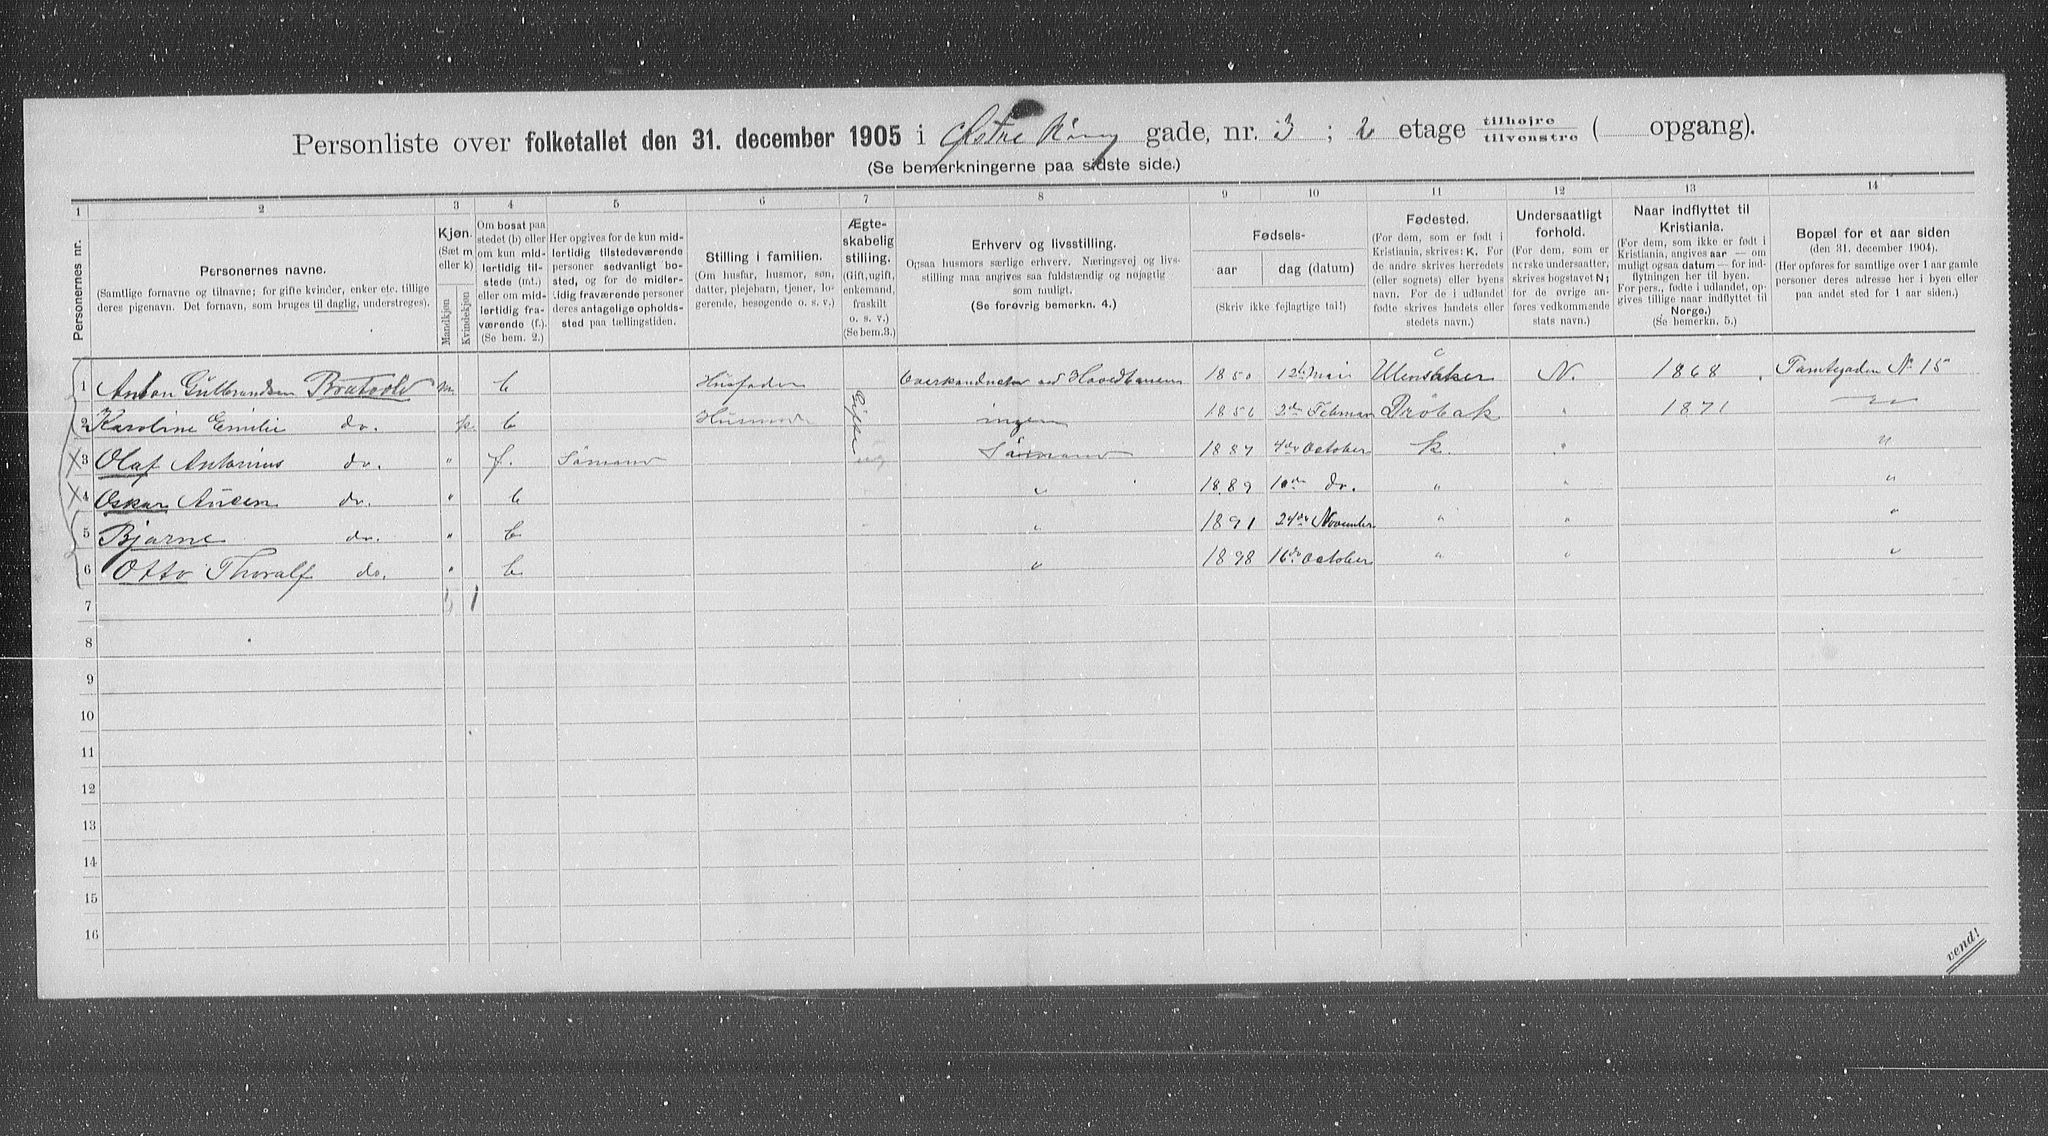 Personliste over folketallet den 31. december 1905 i Østre gade, nr. 3 ; 2 etage tilhøjre / tilvenstre ( opgang).
(Se bemerkningerne paa sidste side.)
1 2 3 4 5 6 7 8 9 10 11 12 13 14
Personernes nr.
Personernes navne.
(Samtlige fornavne og tilnavne; for gifte kvinder, enker etc. tillige
deres pigenavn. Det fornavn, som bruges til daglig, understreges).
Kjøn.
(Sæt m
eller k)
Mandkjøn.
Kvindekjøn.
Om bosat paa
stedet (b) eller
om kun mid-
lertidig til-
stede (mt.)
eller om mid-
lertidig fra-
værende (f.)
(Se bem. 2.)
Her opgives for de kun mid-
lertidig tilstedeværende
personer sedvanligt bo-
sted, og for de midler-
tidig fraværende personer
deres antagelige opholds-
sted paa tællingstiden.
Stilling i familien.
(Om husfar, husmor, søn,
datter, plejebarn, tjener, lo-
gerende, besøgende o. s. v.)
Ægte-
skabelig
stilling.
(Gift, ugift,
enkemand,
fraskilt
o. s. v.)
(Se bem. 3.)
Erhverv og livsstilling.
Ogsaa husmors særlige erhverv. Næringsvej og livs-
stilling maa angives saa fuldstændig og nøjagtig
som muligt.
(Se forøvrig bemerkn. 4.)
Fødsels-
aar dag (datum)
(Skriv ikke fejlagtige tal!)
Fødested.
(For dem, som er født i
Kristiania, skrives: K. For
de andre skrives herredets
(eller sognets) eller byens
navn. For de i udlandet
fødte skrives landets eller
stedets navn.)
Undersaatligt
forhold.
(For dem, som er
norske undersaatter,
skrives bogstavet N;
for de øvrige an-
føres vedkommende
stats navn.)
Naar indflyttet til
Kristiania.
(For dem, som ikke er født i
Kristiania, angives aar — om
muligt ogsaa datum — for ind-
flytningen her til byen.
For pers., fødte i udlandet, op-
gives tillige naar indflyttet til
Norge.)
(Se bemerkn. 5.)
Bopæl for et aar siden
(den 31. december 1904).
(Her opføres for samtlige over 1 aar gamle
personer deres adresse her i byen eller
paa andet sted for 1 aar siden.)
1 Anton Gulbrandsen Bratvold m b Husfader Gift Overkonduktør ved Hovedbanen 1850 12te Mai Ulensaker N. 1868 Tomtegaden No 15
2 Karoline Emilie do. k. b Husmoder ingen 2den Februar Drøbak " 1871 "
3 Olaf Antonius do. " f. Sømand Sømand 1887 4de October k. " "
4 Oskar do. " b " 1889 10de do. " " "
5 Bjarne do. " b " 1891 24de November " " "
6 Otto Thoralf do. " b " 1898 16de October " " "
7 1
8
9
10
11
12
13
14
15
16
vend!